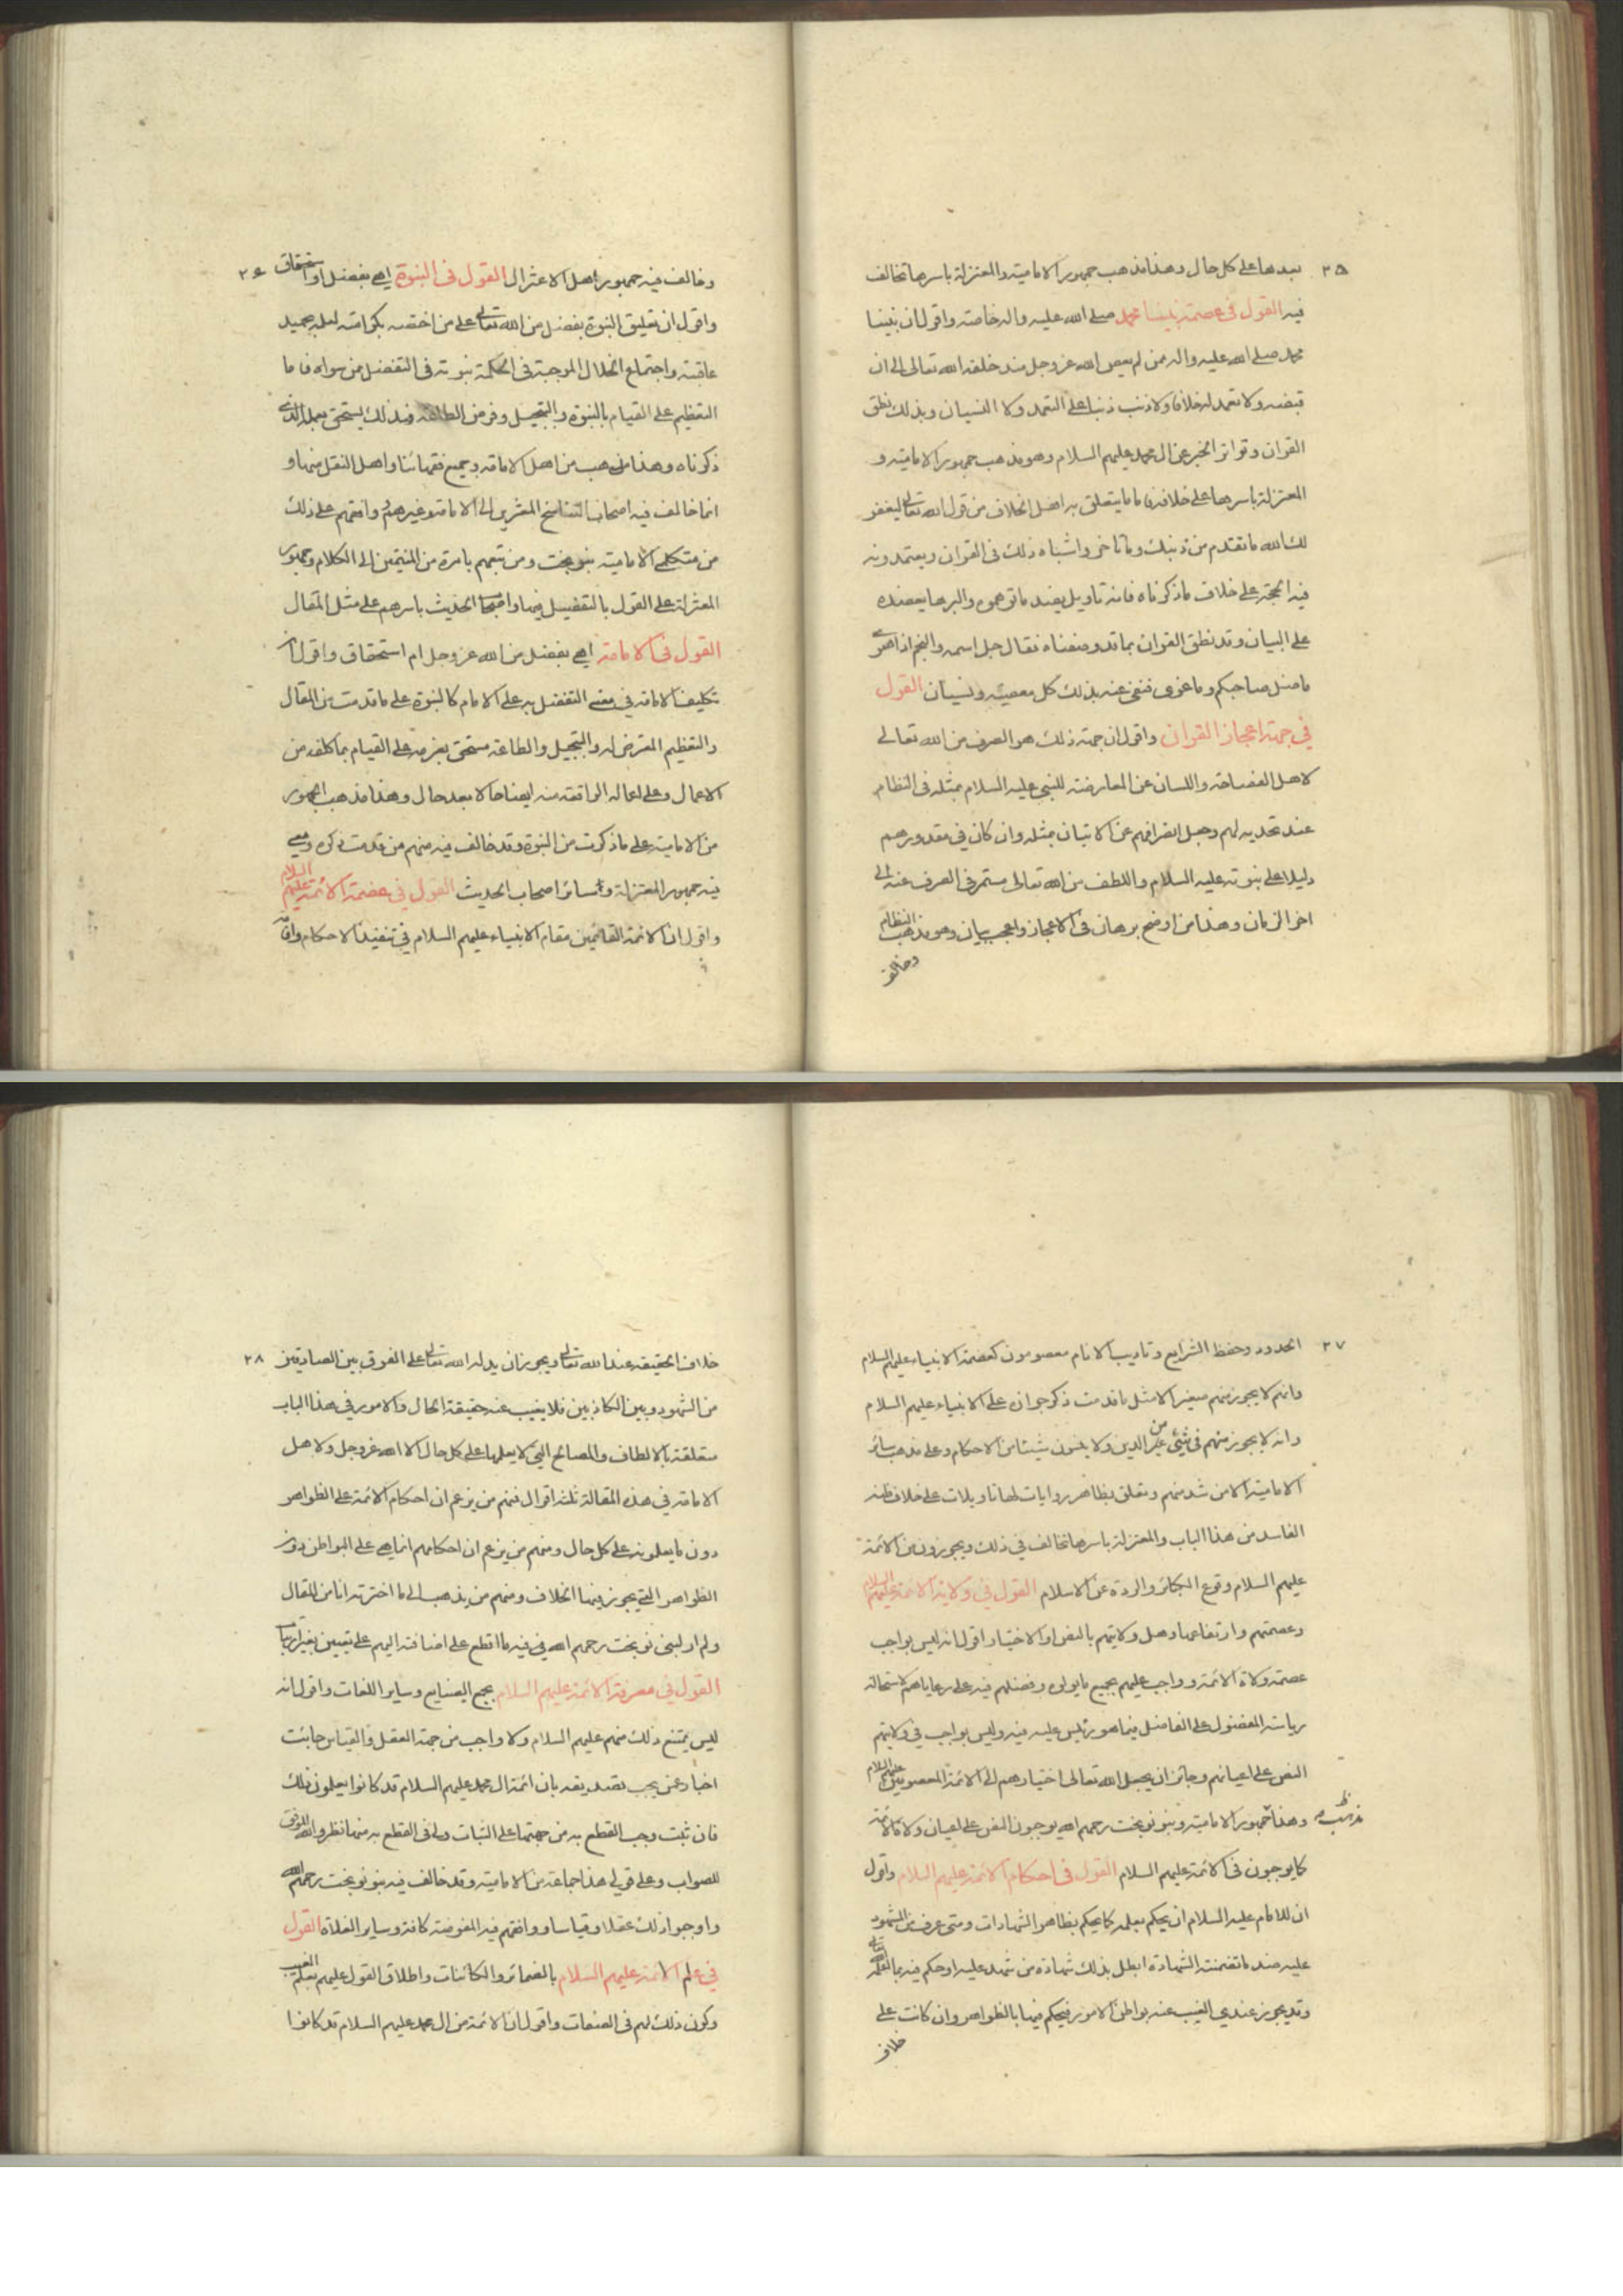 ٢٥
بعدها على كل حال وهذا مذهب جمهور الامامية والمعتزلة باسرها تخالف
فيه القول فى عصمة نبينا محمد صلى الله عليه واله خاصة واقول ان نبينا
محمد صلى الله عليه واله ممن لم يعص الله عز وجل منذ خلقه الله تعالى الى ان
قبضه ولا تعمد له خلافا ولا ذنب ذنبا على التعمد ولا النسيان وبذلك نطق
القران وتواتر الخبر عن ال محمد عليهم السلام وهو مذهب جمهور الامامية و
المعتزلة باسرها على خلافه فاما ما يتعلق به اهل الخلاف من قول الله تعالى ليغفر
لك الله ما تقدم من ذنبك وما تاخر واشباه ذلك فى القران ويعتمدونه
فيه الحجة على خلاف ما ذكرناه فانه تاويل بضد ما توهموه والبرهان يعضده
على البيان وقد نطق القران بما قد وصفناه فقال جل اسمه والنجم اذا هوى
ما ضل صاحبكم وما غوى فنفى عنه بذلك كل معصية ونسيان القول
فى جهة اعجاز القران واقول ان جهة ذلك هو الصرف من الله تعالى
لاهل الفصاحة واللسان عن المعارضة للنبى عليه السلام بمثله فى النظام
عند تحديه لهم وجعل انصرافهم عن الاتيان بمثله وان كان فى مقدورهم
دليلا على نبوته عليه السلام واللطف من الله تعالى مستمر فى الصرف عنه الى
اخر الزمان وهذا من اوضح برهان فى الاعجاز واعجب بيان وهو مذهب النظام
وخالف
٢٦
وخالف فيه جمهور اهل الاعتزال القول فى النبوة اهى بفضل او استحقاق
واقول ان تعليق النبوة بفضل من الله تعالى على من اختصه بكرامته لعلمه بحميد
عاقبته واجتماع الخلال الموجبة فى الحكمة نبوته فى التفضل من سواه فاما
التعظيم على القيام بالنبوة والتبجيل وفرض الطاعة فبذلك يستحق بعمله الذى
ذكرناه وهذا مذهب من اهل الامامة وجميع فقهائنا واهل النقل منها و
انما خالف فيه اصحاب التناسخ المعتزين الى الامامة وغيرهم وافقهم على ذلك
من متكلمى الامامية بنو نوبخت ومن تبعهم بامرة من المنتمين الى الكلام وجمهور
المعتزلة على القول بالتفضيل فيها واصحاب الحديث باسرهم على مثل المقال
القول فى الامامة اهى بفضل من الله عز وجل ام استحقاق واقول ان
تكليف الامامة فى معنى التفضل به على الامام كالنبوة على ما قدمت من المقال
والتعظيم المفترض له والتبجيل والطاعة مستحق بعزمه على القيام بما كلفه من
الاعمال وعلى اعماله الواقعة منه ايضا حالا بعد حال وهذا مذهب الجمهور
من الامامية على ما ذكرت من النبوة وقد خالف فيه منهم من قدمت ذكره ومعى
فيه جمهور المعتزلة وسائر اصحاب الحديث القول فى عصمة الائمة عليهم السلام
واقول ان الائمة القائمين مقام الانبياء عليهم السلام فى تنفيذ الاحكام واقامة
٢٧
الحدود وحفظ الشرايع وتاديب الانام معصومون كعصمة الانبياء عليهم السلام
وانهم لا يجوز منهم صغير الا مثل ما قدمت ذكر جوازه على الانبياء عليهم السلام
وانه لا يجوز منهم فى شئ من الدين ولا ينسون شيئا من الاحكام وعلى مذهب سائر
الامامية الا من شذ منهم وتعلق بظاهر روايات لها تاويلات على خلاف ظنه
الفاسد من هذا الباب والمعتزلة باسرها تخالف فى ذلك ويجوزون من الائمة
عليهم السلام وقوع الكبائر والردة عن الاسلام القول فى ولاية الائمة عليهم السلام
وعصمتهم وارتفاعها وهل ولايتهم بالنص او الاختيار اقول انه ليس بواجب
عصمة ولاة الائمة وواجب عليهم بجميع ما يولوه وفضلهم فيه على رعاياهم لاستحالة
رياسة المفضول على الفاضل فيما هو رئيس عليه فيه وليس بواجب فى ولايتهم
النص على اعيانهم وجائز ان يجعل الله تعالى اختيارهم الى الائمة المعصومين عليهم السلام
وهذا مذهب جمهور الامامية وبنو نوبخت رحمهم الله يوجبون النص على اعيان ولاة الائمة
كما يوجبون فى الائمة عليهم السلام القول فى احكام الائمة عليهم السلام واقول
ان للامام عليه السلام ان يحكم بعلمه كما يحكم بظاهر الشهادات ومتى عرف من المشهود
عليه ضد ما تضمنته الشهادة ابطل بذلك شهادة من شهد عليه او حكم فيه بما اعلمه الله تعالى
وقد يجوز عندى ان تغيب عنه بواطن الامور فيحكم فيها بالظواهر وان كانت على
خلاف
٢٨
خلاف الحقيقة عند الله تعالى ويجوز ان يدله الله تعالى على الفرق بين الصادقين
من الشهود وبين الكاذبين فلا يغيب عنه حقيقة الحال والامور فى هذا الباب
متعلقة بالالطاف والمصالح التى لا يعلمها على كل حال الا الله عز وجل ولاهل
الامامة فى هذه المقالة ثلثة اقوال فمنهم من يزعم ان احكام الائمة على الظواهر
دون ما يعلمونه على كل حال ومنهم من يزعم ان احكامهم انما هى على البواطن دون
الظواهر التى يجوز فيها الخلاف ومنهم من يذهب الى ما اخترته انا من المقال
ولم ار لبنى نوبخت رحمهم الله فى فيه ما اقطع على اضافته اليهم على تعيين بغير ارتياب
القول فى معرفة الائمة عليهم السلام بجميع الصنايع وساير اللغات واقول انه
ليس يمتنع ذلك منهم عليهم السلام ولا واجب من جهة العقل والقياس جائت
اخبار عمن يجب تصديقه بان ائمة ال محمد عليهم السلام قد كانوا يعلمون ذلك
فان ثبت وجب القطع به من جهتها على الثبات ولى فى القطع به منها نظر والله الموفق
للصواب وعلى قولى هذا جماعة من الامامية وقد خالف فيه بنو نوبخت رحمهم الله
واوجبوا ذلك عقلا وقياسا ووافقهم فيه المفوضة كافة وساير الغلاة القول
فى علم الائمة عليهم السلام بالضمائر والكائنات واطلاق القول عليهم بعلم الغيب
وكون ذلك لهم فى الصفات واقول ان الائمة من ال محمد عليهم السلام قد كانوا